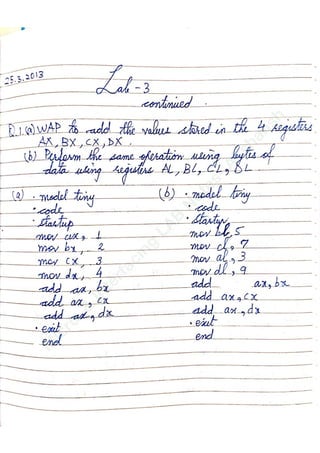 25.3.2013
Lab - 3
continued.
Q.1 (a) WAP to add the values stored in the 4 registers
AX, BX, CX, DX.
(b) Perform the same operation using bytes of
data using registers AL, BL, CL, DL
(a) .model tiny
.code
.startup
mov ax, 1
mov bx, 2
mov cx, 3
mov dx, 4
add ax, bx
add ax, cx
add ax, dx
.exit
end
(b) .model tiny
.code
.startup
mov bl, 5
mov cl, 7
mov al, 3
mov dl, 9
add ax, bx
add ax, cx
add ax, dx
.exit
end